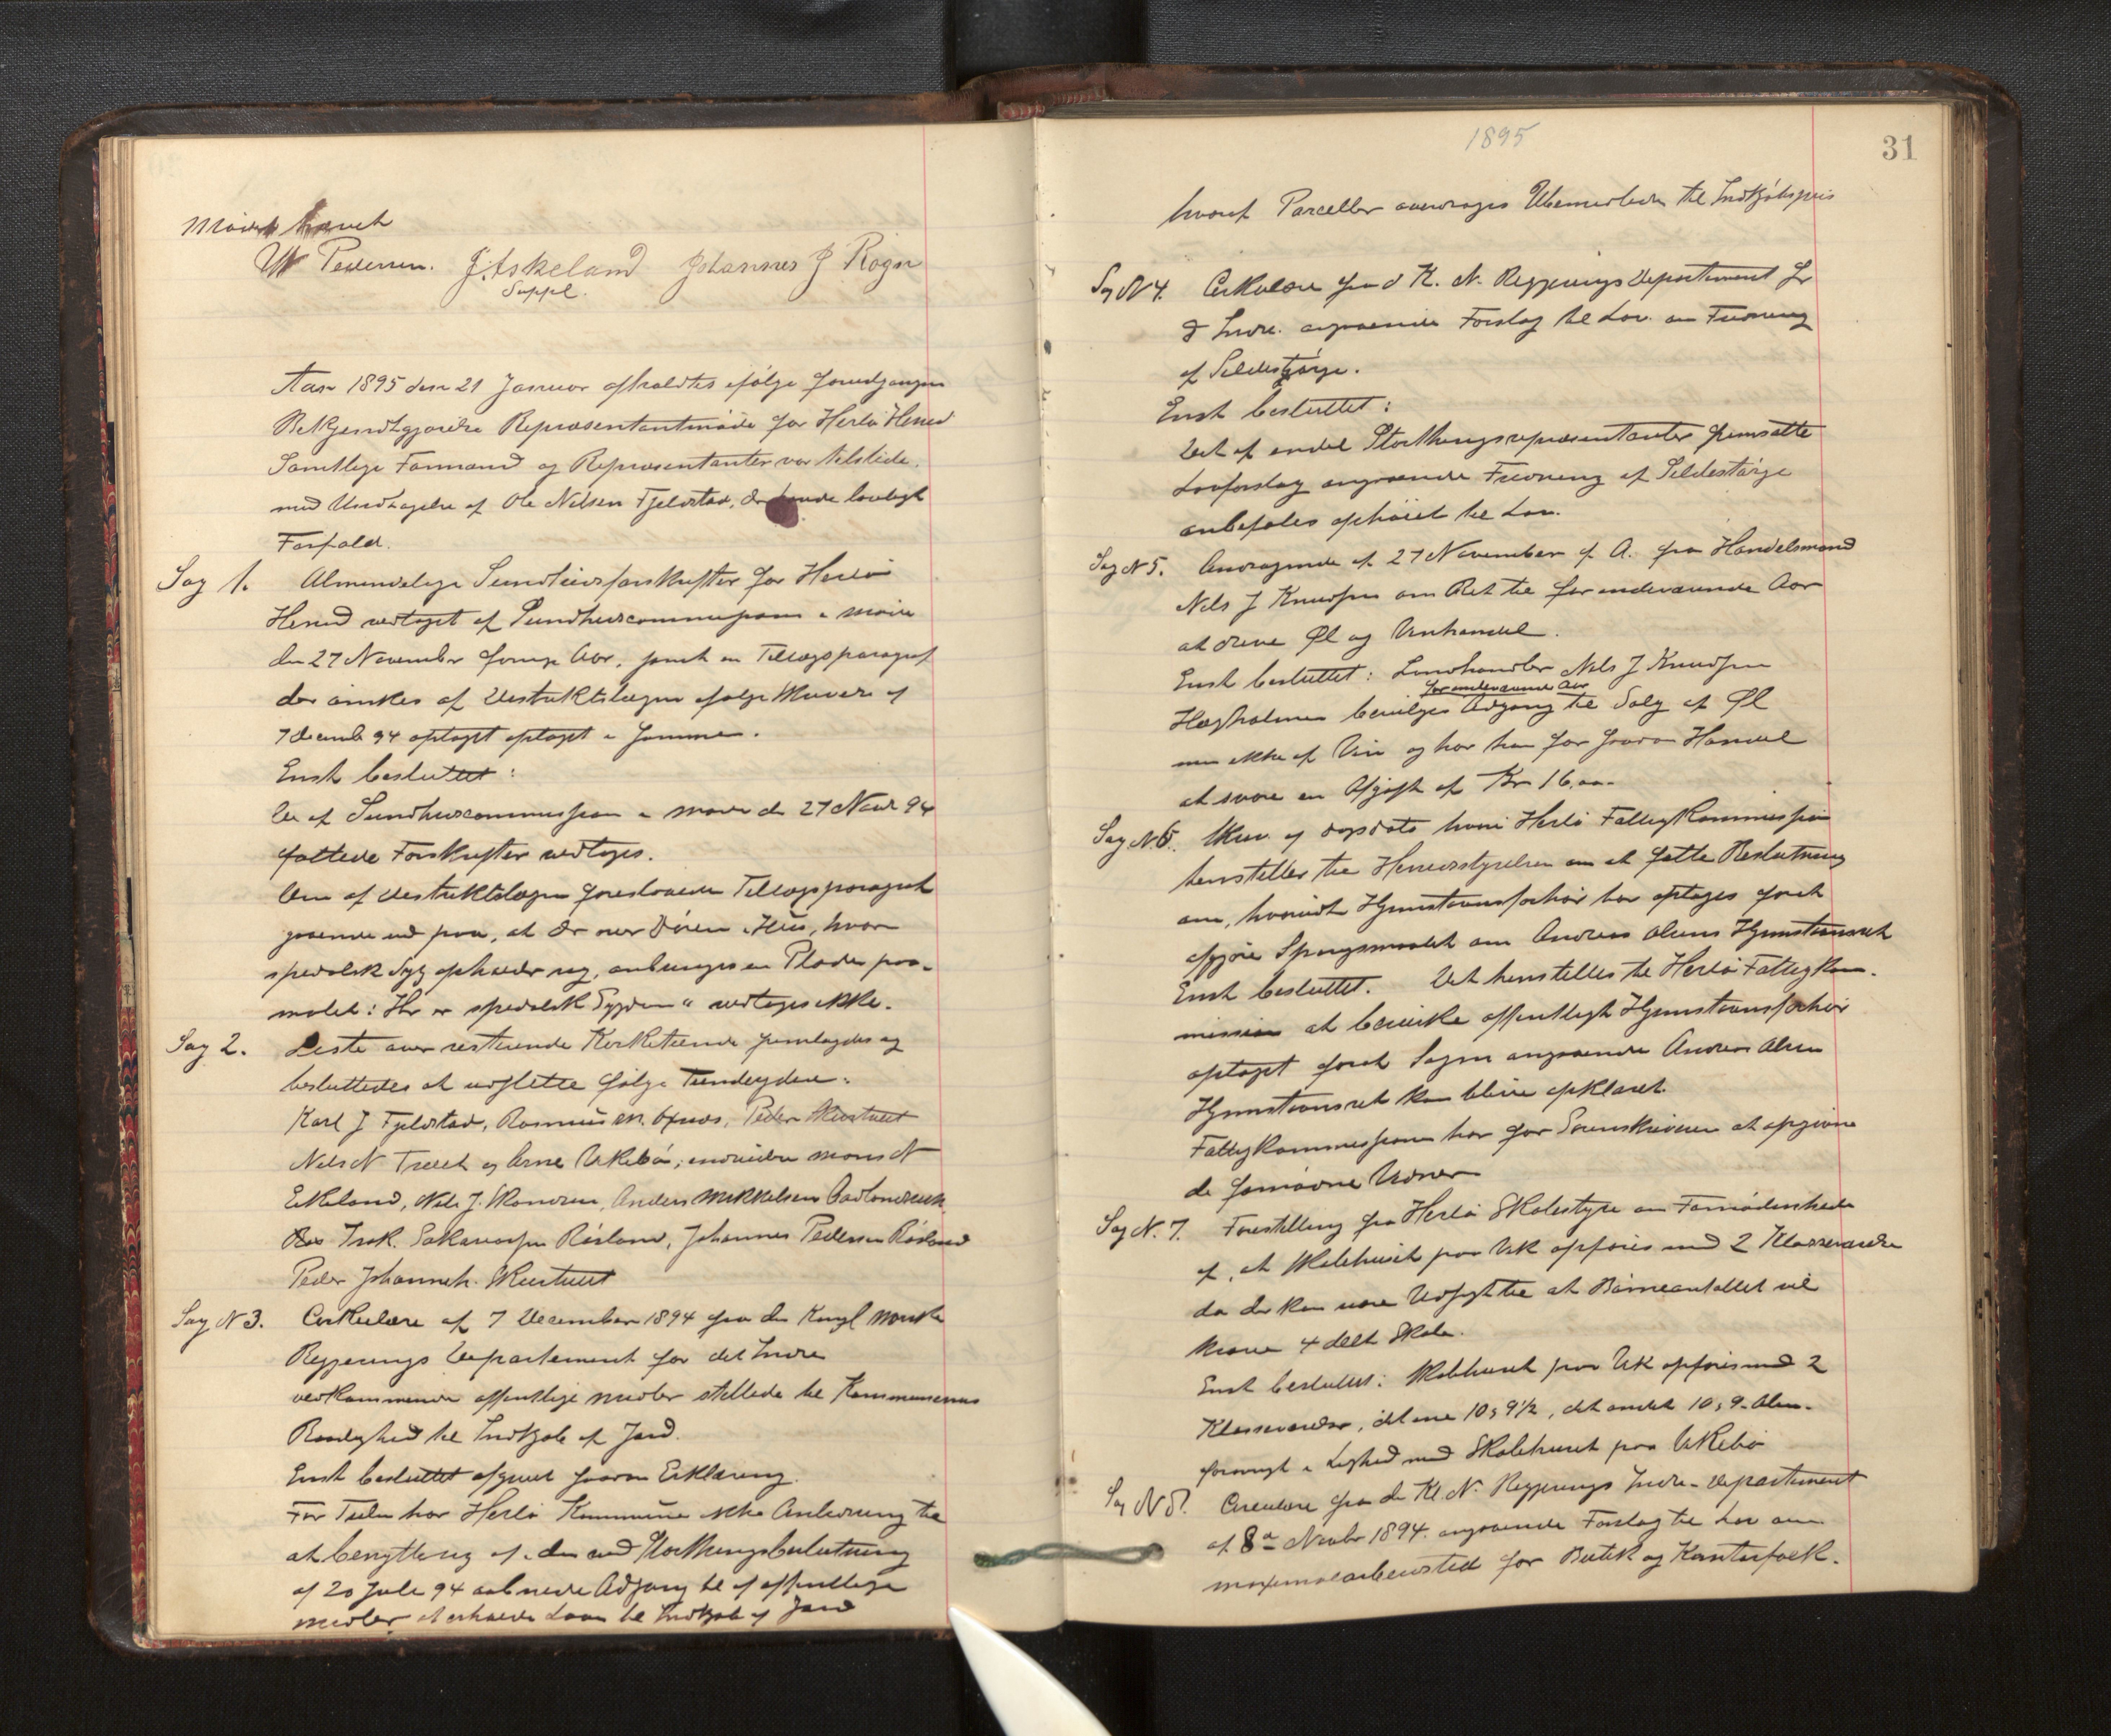 Mødet hævet
W Pedersen. J. Askeland Johannes J Rogn
Suppl.
Aar 1895 den 21 Januar afholdtes ifølge foregaaende
Bekjendtgjørelse Repræsentantmøde for Herlø Hered
Samtlige Formænd og Repræsentanter var tilstede
med Undtagelse af Ole Nilsen Fjeldstad, der havde lovligt
Forfald.
Sag 1. Almindelige Sundhedsforskrifter for Herlø
Hered vedtaget af Sundhedscommissionen i møde
den 27 November forrige Aar, samt en Tillægsparagraf
der ønskes af Distriktslægen ifølge Skrivelse af
7 decemb 94 optaget optaget i samme.
Enst besluttet:
De af Sundhedscommissionen i møde de 27 Novbr 94
fattede Forskrifter vedtages.
Den af Distriktslægen foreslaaede Tillægsparagraf
gaaende ud paa, at der over Døren i Hus, hvor
spedalsk Syg opholder sig, anbringes en Plade paa-
malet: Her er spedalsk Sygdom" vedtages ikke.
Sag 2. Liste over resterende Kirketiende fremlagdes og
besluttedes at udslette følge Tiendeydere:
Karl J Fjeldstad, Rasmus M. Ofnes, Peder Skurtveit
Nils N Tveit og Arne Ukebø; endvidere Mons N
Eikeland, Nils J. Skandsen, Anders Mikkelsen
Isak. Sakariassen Røsland, Johannes Pedersen Røsland
Peder Johannesen. Skurtveit
Sag N 3. Cirkulære af 7 December 1894 fra de Kongl norske
Regjerings Departement for det Indre
vedkommende offentlige midler stillede til Kommunernes
Raadighed til Indkjøb af Jord.
Enst besluttet afgivet saadan Erklæring.
For Tiden har Herlø Kommune ikke Anledning til
at benytte sig af den ved Storthingsbeslutning
af 20 Juli 94 aabnede Adgang til af offentlige
midler at erholde Laan til Indkjøb af Jord
1895
31
hvoraf Parceller overdrages Ubemidlede til Indkjøbspris
Sag N 4. Cirkulære fra d K. N. Regjerings Departement for
d Indre. angaaende Forslag til Lov. om Fredning
af Sildestørje.
Enst besluttet:
Det af endel Storthingsrepræsentanter fremsatte
Lovforslag angaaende Fredning af Sildestørje
anbefales ophøiet til Lov.
Sag N 5. Andragende af 27 November f A. fra Handelsmand
Nils J Knudsen om Ret til for indeværende Aar
at drive Øl og Vinhandel.
Enst besluttet: Landhandler Nils J Knudsen
for indeværende Aar
Hægholmen bevilges Adgang til Salg af Øl
men ikke af Vin og har han for saadan Handel
at svare en Afgift af Kr 16.00.
Sag N. 6. Skriv. af dagsdato hvori Herlø Fattigkommission
henstiller til Heredsstyrelsen om at fatte Beslutning
om, hvorvidt Hjemstavnsforhør bør optages forat
afgjøre Spørgsmaalet om Andreas Olsens Hjemstavnsret
Enst besluttet. Det henstilles til Herlø Fattigkom-
mission at bevirke offentligt Hjemstavnsforhør
optaget forat Sagen angaaende Andreas Olsen
Hjemstavnsret kan blive opklaret.
Fattigkommissionen har for Sorenskriveren at opgive
de fornødne Vidner
Sag N. 7. Forestilling fra Herlø Skolestyre om Fornødenheden
af, at Skolehuset paa Uk opføres med 2 Klasseværelser
da der kan være Udsigt til at Børneantallet vil
kræve 4 delt Skole.
Enst besluttet: Skolehuset paa Uk opføres med 2
Klasseværelser, det ene 10 x 9½, det andet 10 x 9 Alen.
forøvrigt i Lighed med Skolehuset paa Ukebø
Sag N 8. Circulære fra de Kl N. Regjerings Indre-Departement
af 8de Novbr 1894. angaaende Forslag til Lov om
maximalarbeidstid for Butik og Kontorfolk.